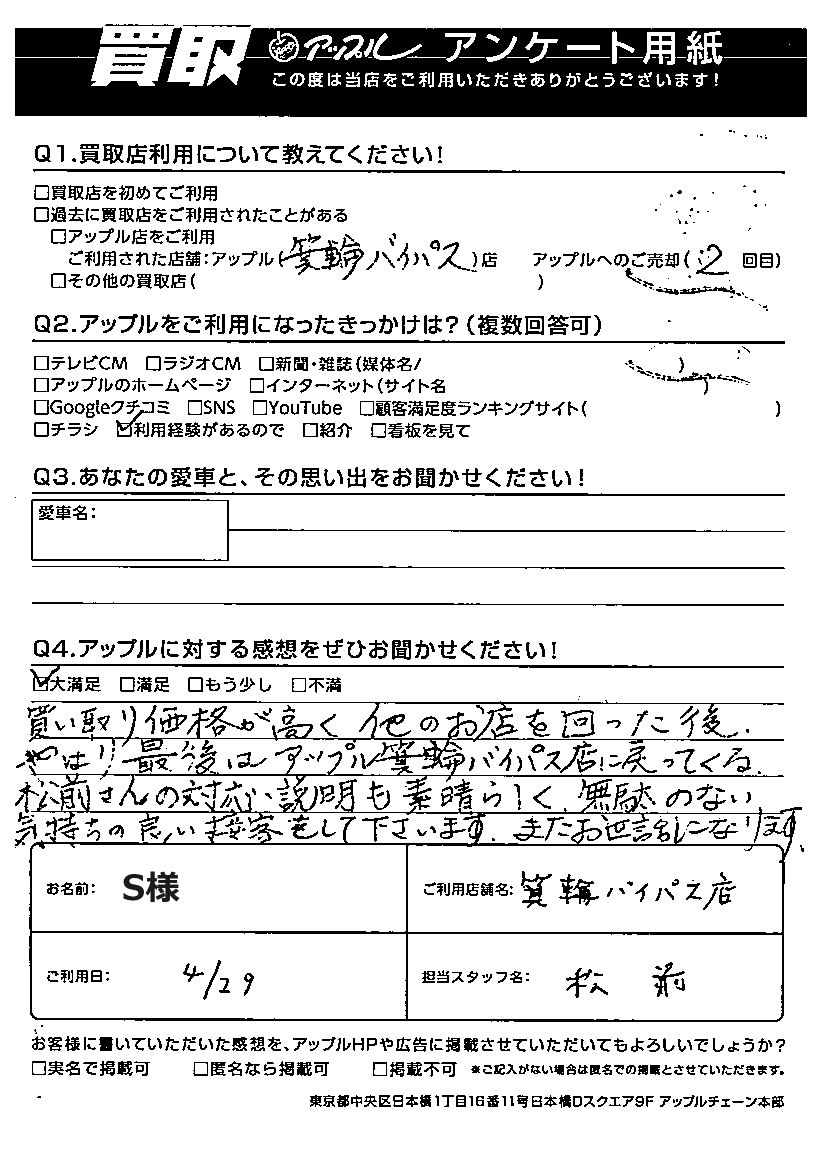 買取 アップル アンケート用紙
この度は当店をご利用いただきありがとうございます!
Q1.買取店利用について教えてください!
□買取店を初めてご利用
□過去に買取店をご利用されたことがある
□アップル店をご利用
ご利用された店舗:アップル(箕輪バイパス)店 アップルへのご売却(2回目)
□その他の買取店( )
Q2.アップルをご利用になったきっかけは?(複数回答可)
□テレビCM □ラジオCM □新聞・雑誌(媒体名/ )
□アップルのホームページ □インターネット(サイト名 )
□Googleクチコミ □SNS □YouTube □顧客満足度ランキングサイト( )
□チラシ ☑利用経験があるので □紹介 □看板を見て
Q3.あなたの愛車と、その思い出をお聞かせください!
愛車名:
Q4.アップルに対する感想をぜひお聞かせください!
☑大満足 □満足 □もう少し □不満
買い取り価格が高く他のお店を回った後、
やはり最後はアップル箕輪バイパス店に戻ってくる。
松前さんの対応、説明も素晴らしく、無駄のない
気持ちの良い接客をして下さいます。またお世話になります。
お名前: S様 ご利用店舗名: 箕輪バイパス店
ご利用日: 4/29 担当スタッフ名: 松前
お客様に書いていただいた感想を、アップルHPや広告に掲載させていただいてもよろしいでしょうか?
□実名で掲載可 □匿名なら掲載可 □掲載不可 ※ご記入がない場合は匿名での掲載とさせていただきます。
東京都中央区日本橋1丁目16番11号日本橋Dスクエア9F アップルチェーン本部